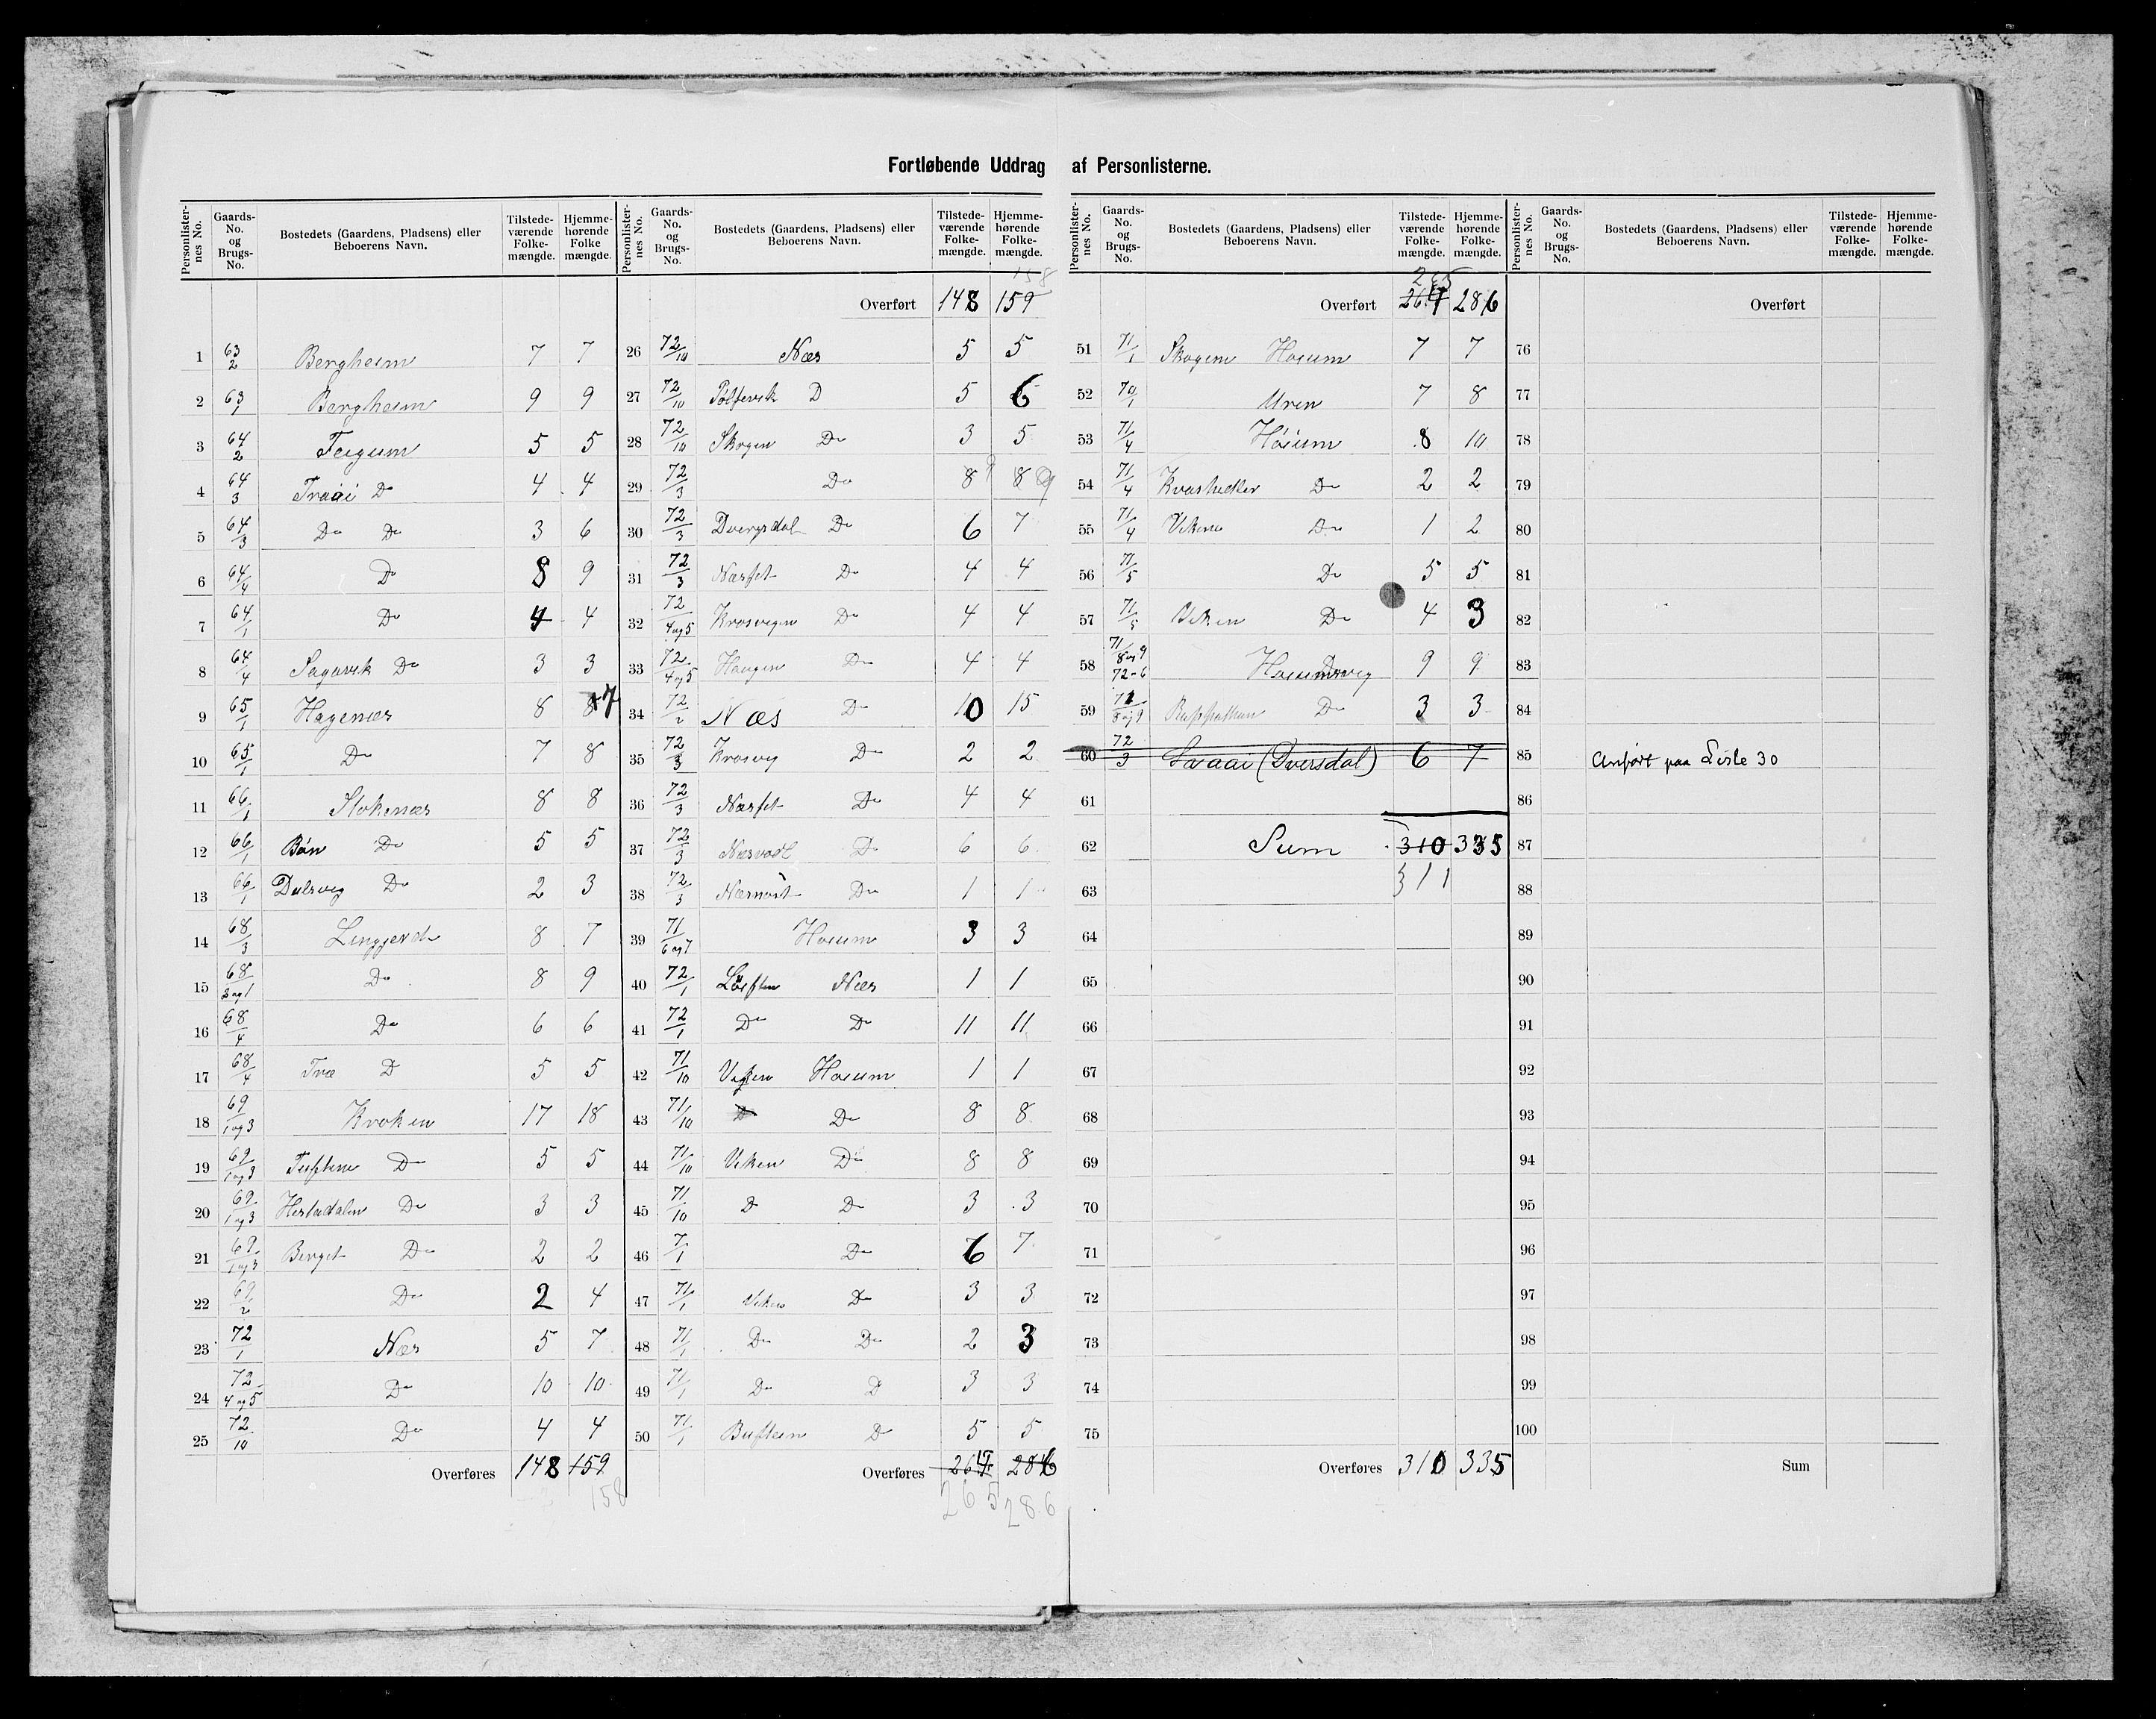 Fortløbende Uddrag af Personlisterne.
Personlister-nes No. Gaards-No. og Brugs-No. Bostedets (Gaardens, Pladsens) eller Beboerens Navn. Tilstede-værende Folke-mængde. Hjemme-hørende Folke mængde.
1 63/2 Bergheim 7 7
2 63/1 Bergheim 9 9
3 64/2 Feigum 5 5
4 64/3 Traai Do 4 4
5 64/3 Do Do 3 6
6 64/4 Do 8 9
7 64/1 Do 4 4
8 64/4 Sagavik Do 3 3
9 65/1 Hagenæs 8 7
10 65/1 Do 7 8
11 66/1 Stokenæs 8 8
12 66/1 Bøn Do 5 5
13 66/1 Dulsvig Do 2 3
14 68/3 8 7
15 68/2 og 1 Do 8 9
16 68/4 Do 6 6
17 68/4 Træ D 5 5
18 69/1 og 3 Kroken 17 18
19 69/1 og 3 Tuften Do 5 5
20 69/1 og 3 Hestadalen Do 3 3
21 69/1 og 3 Berget Do 2 2
22 69/2 Do 2 4
23 72/1 Næs 5 7
24 72/4 og 5 Do 10 10
25 72/10 Do 4 4
Overføres 148 159
158
Personlister-nes No. Gaards-No. og Brugs-No. Bostedets (Gaardens, Pladsens) eller Beboerens Navn. Tilstede-værende Folke-mængde. Hjemme-hørende Folke-mængde.
158
Overført 148 159
26 72/10 Næs 5 5
27 72/10 D 5 6
28 72/10 Skogen Do 3 5
29 72/3 Do 8 9 8 9
30 72/3 Dvergsdal Do 6 7
31 72/3 Næsset Do 4 4
32 72/4 og 5 Krosvigen Do 4 4
33 72/4 og 5 Haugen Do 4 4
34 72/2 Næs Do 10 15
35 72/3 Krosvig Do 2 2
36 72/3 Næsset Do 4 4
37 72/3 Do 6 6
38 72/3 Do 1 1
39 71/6 og 7 Høium 3 3
40 72/1 Løiften Næs 1 1
41 72/1 Do Do 11 11
42 71/10 Høium 1 1
43 71/10 D Do 8 8
44 71/10 Viken Do 8 8
45 71/10 D Do 3 3
46 7/1 Do 6 7
47 71/1 Viken Do 3 3
48 71/1 Do Do 2 3
49 71/1 Do D 3 3
50 71/1 D 5 5
Overføres 264 286
265 286
Personlister-nes No. Gaards-No. og Brugs-No. Bostedets (Gaardens, Pladsens) eller Beboerens Navn. Tilstede-værende Folke-mængde. Hjemme-hørende Folke-mængde.
265
Overført 264 286
51 71/1 Skogen Høium 7 7
52 70/1 Uren 7 8
53 71/4 Høium 8 10
54 71/4 Kvashedler Do 2 2
55 71/4 Vikene Do 1 2
56 71/5 Do 5 5
57 71/5 Viken Do 4 3
58 71/8 og 9 72-6 Høiumsvig 9 9
59 71/8 og 9 Do 3 3
60 72/3 (Dversdal) 6 7
61
62 Sum 310 335
63 311
64
65
66
67
68
69
70
71
72
73
74
75
Overføres 310 335
Personlister-nes No. Gaards-No. og Brugs-No. Bostedets (Gaardens, Pladsens) eller Beboerens Navn. Tilstede-værende Folke-mængde. Hjemme-hørende Folke-mængde.
Overført
76
77
78
79
80
81
82
83
84
85 Anført paa Liste 30
86
87
88
89
90
91
92
93
94
95
96
97
98
99
100
Sum